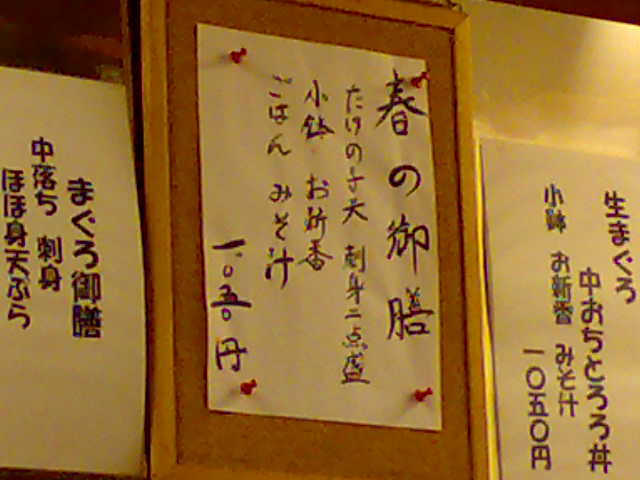 生まぐろ
中おちとろろ丼
小鉢 お新香 みそ汁
一〇五〇円
春の御膳
たけの子天 刺身二点盛
小鉢 お新香
ごはん みそ汁
一、〇五〇円
まぐろ御膳
中落ち 刺身
ほほ身天ぷら